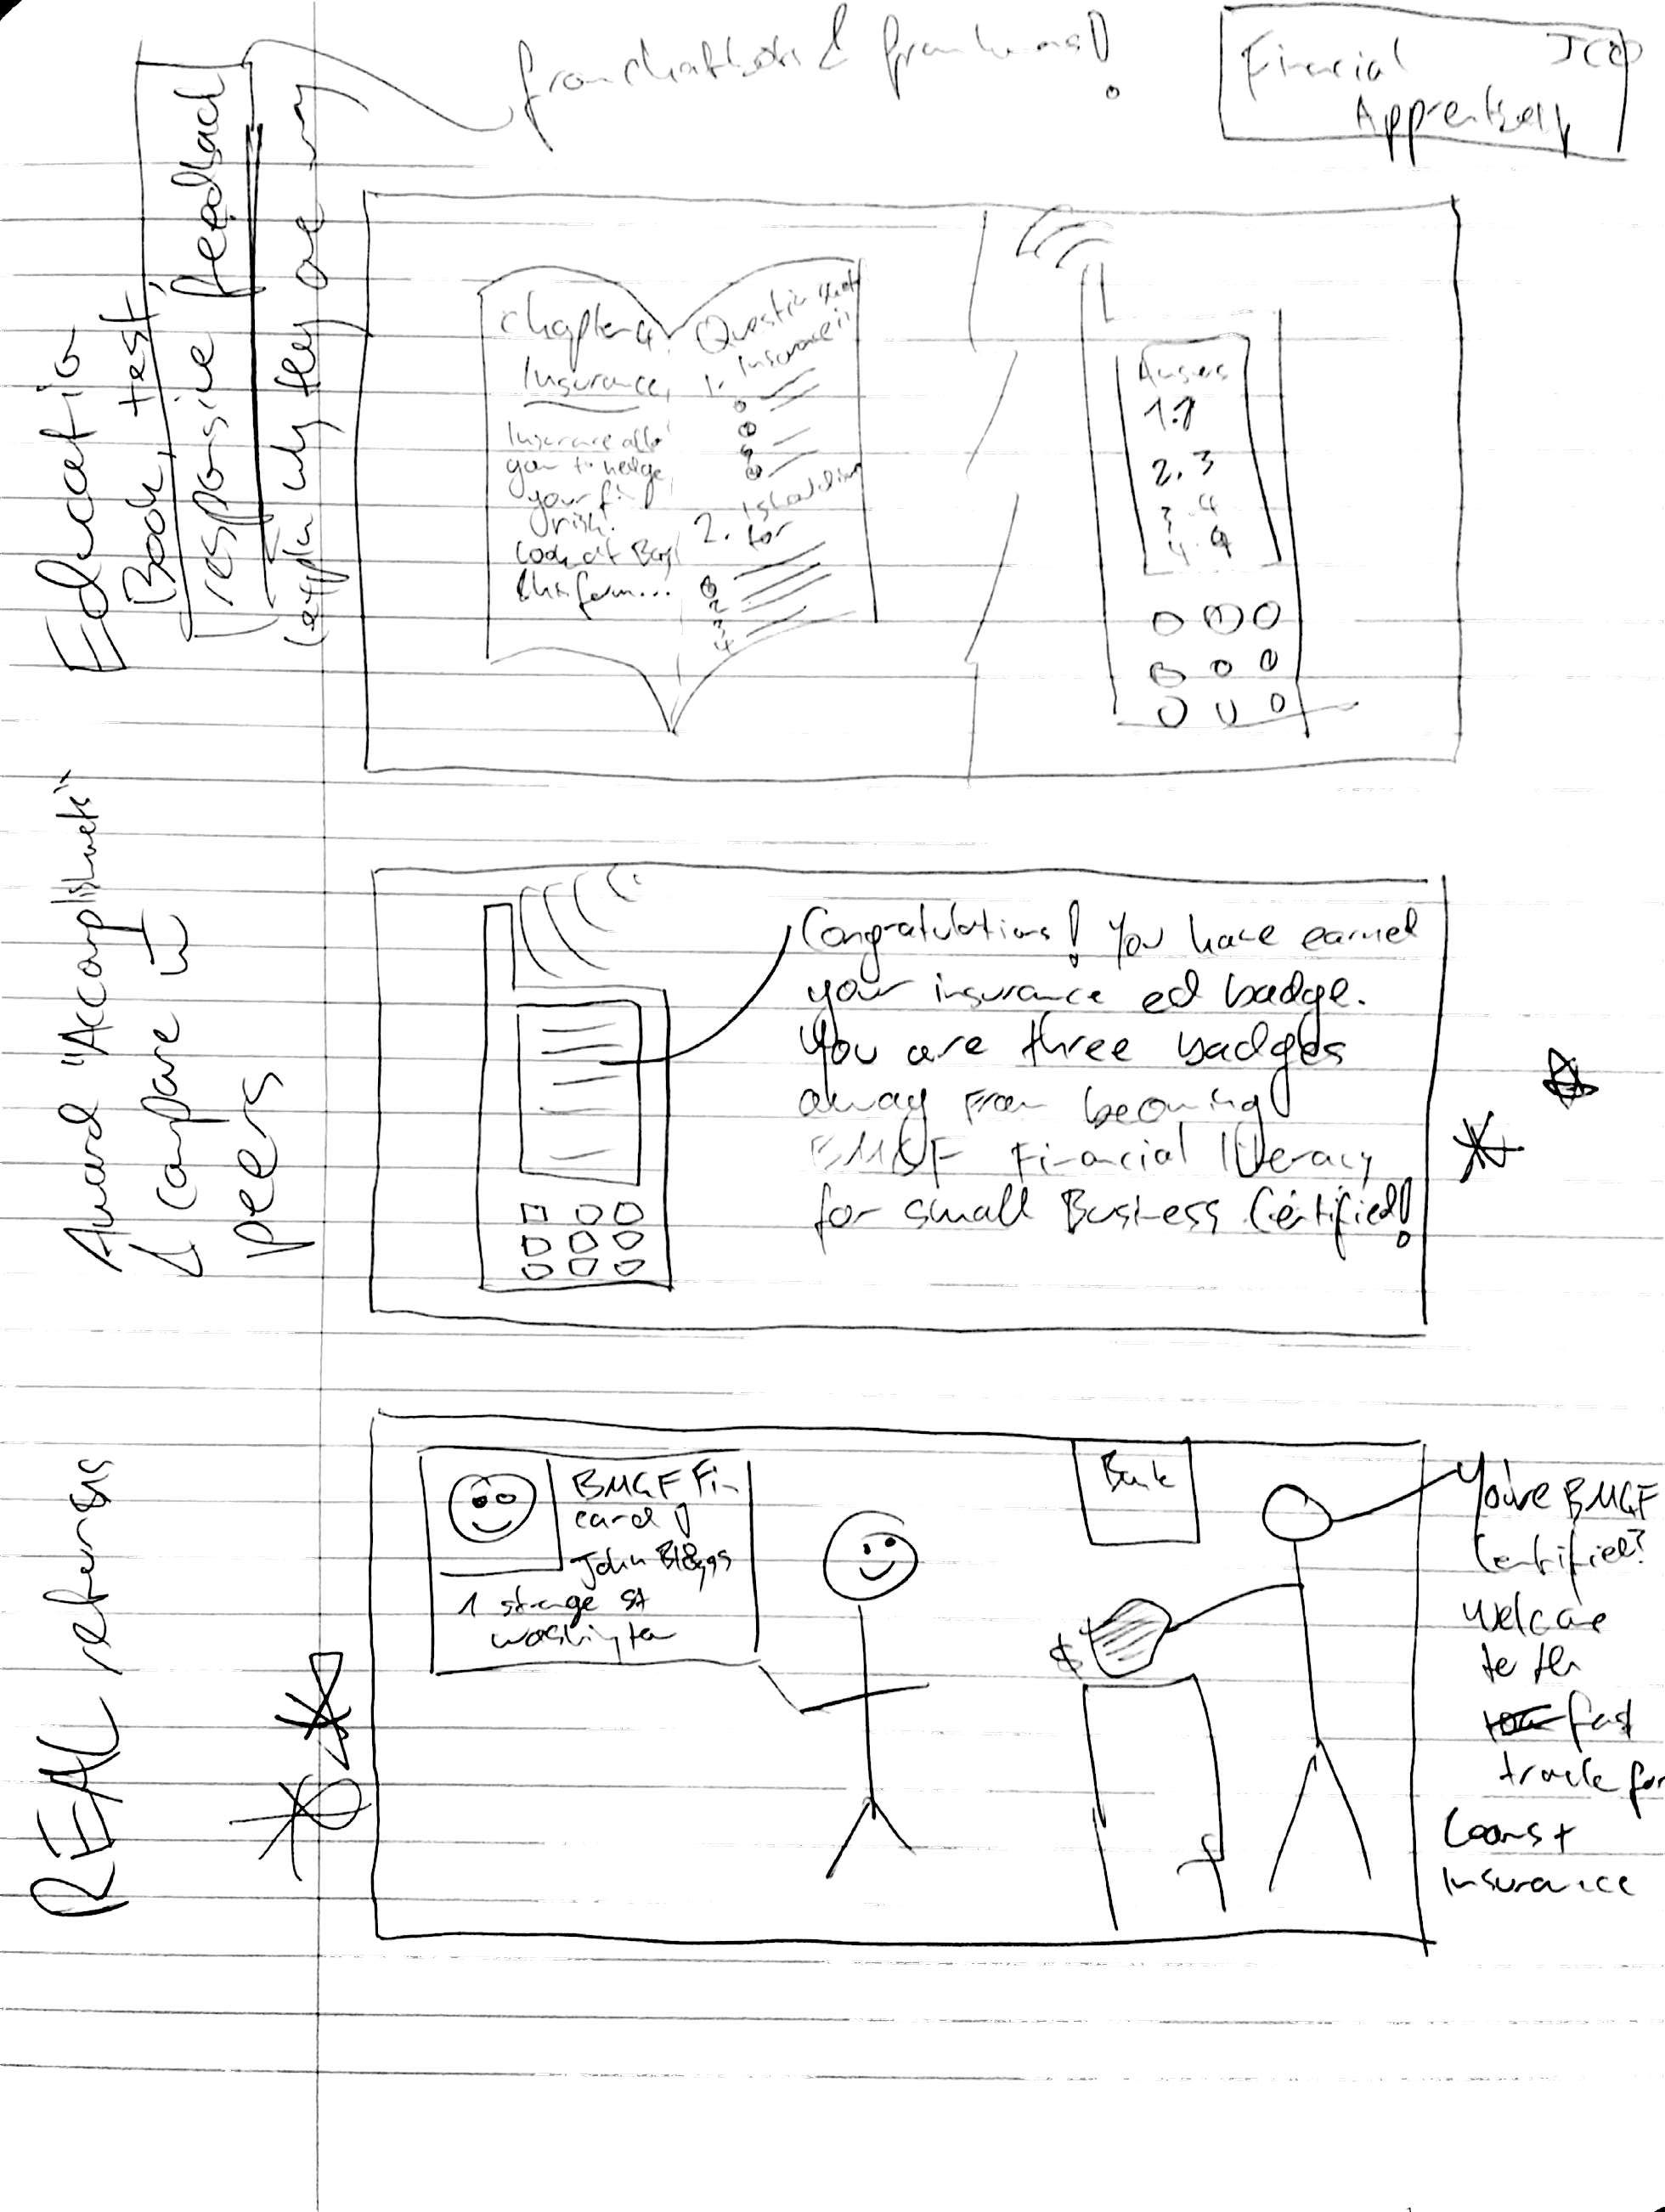 from chatbots & from humans!
Financial
Apprentice
Education
Book, test,
responsive feedback
(explain why they are wrong
Chapter 4
Insurance
Insurance allo
you to hedge
your fin
risk.
Look at
this form...
Question
1. Insurance is
2.
for
1.
2. 3
3. 4
4. 4
Award "Accomplishments"
& compare w
peers
Congratulations! You have earned
your insurance ed badge.
You are three badges
away from becoming
BMGF Financial literacy
for small Business Certified!
REAL returns
BMGF Fin
card!
John Bloggs
1 strange st
washington
Bank
$
You're BMGF
Certified?
Welcome
to the
fast
track for
Loans +
Insurance